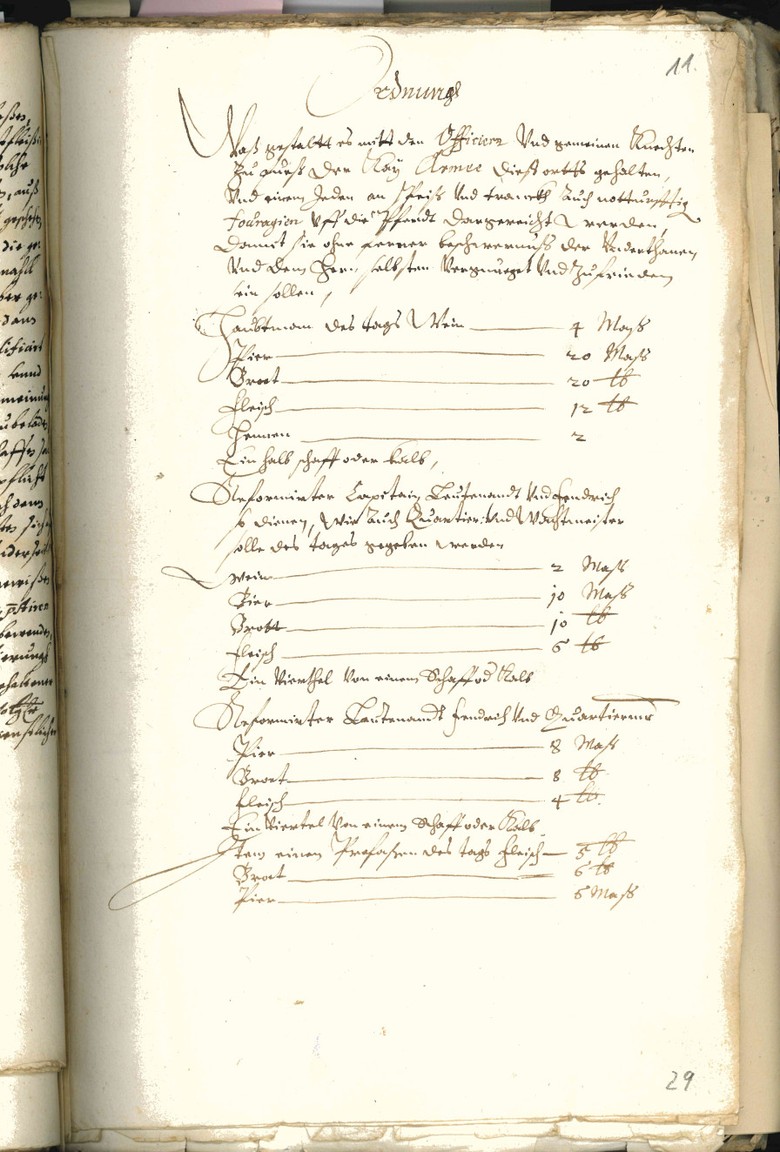 11.
Ordnung
Waß gestaltt es mitt den Officiern Und gemeinen Knechten
Zu Fueß der Kay Armee dieß orts gehalten,
Und einem Jeden an Speiß Und tranckh Auch notturfftig
fouragien Uff die Pferdt dargereicht werden,
Damit sie ohne ferner beschwernuß der Underthanen
Und dem Hern selbsten Vergnüeget Und Zufriden
sein sollen,
Haubtman des tags Wein 4 Maß
Pier 20 Maß
Brot 20 lb
Fleisch 12 lb
Hennen 2
Ein halb schaff oder kalb,
Reformirter Capitain Leutenandt Und Fendrich
so dienen, Wie Auch Quartier: Und Wachtmeister
solle des tages gegeben werden
Wein 2 Maß
Bier 10 Maß
Brott 10 lb
Fleisch 6 lb
Ein Vierthel Von einem Schaff od Kalb
Reformirter Leutenandt Fendrich Und Quartierm
Pier 8 Maß
Brot 8 lb
Fleisch 4 lb.
Ein Viertel Von einem Schaff oder Kalb
Item einen Profosen des tags Fleisch 5 lb
Brot 6 lb
Pier 6 Maß
29